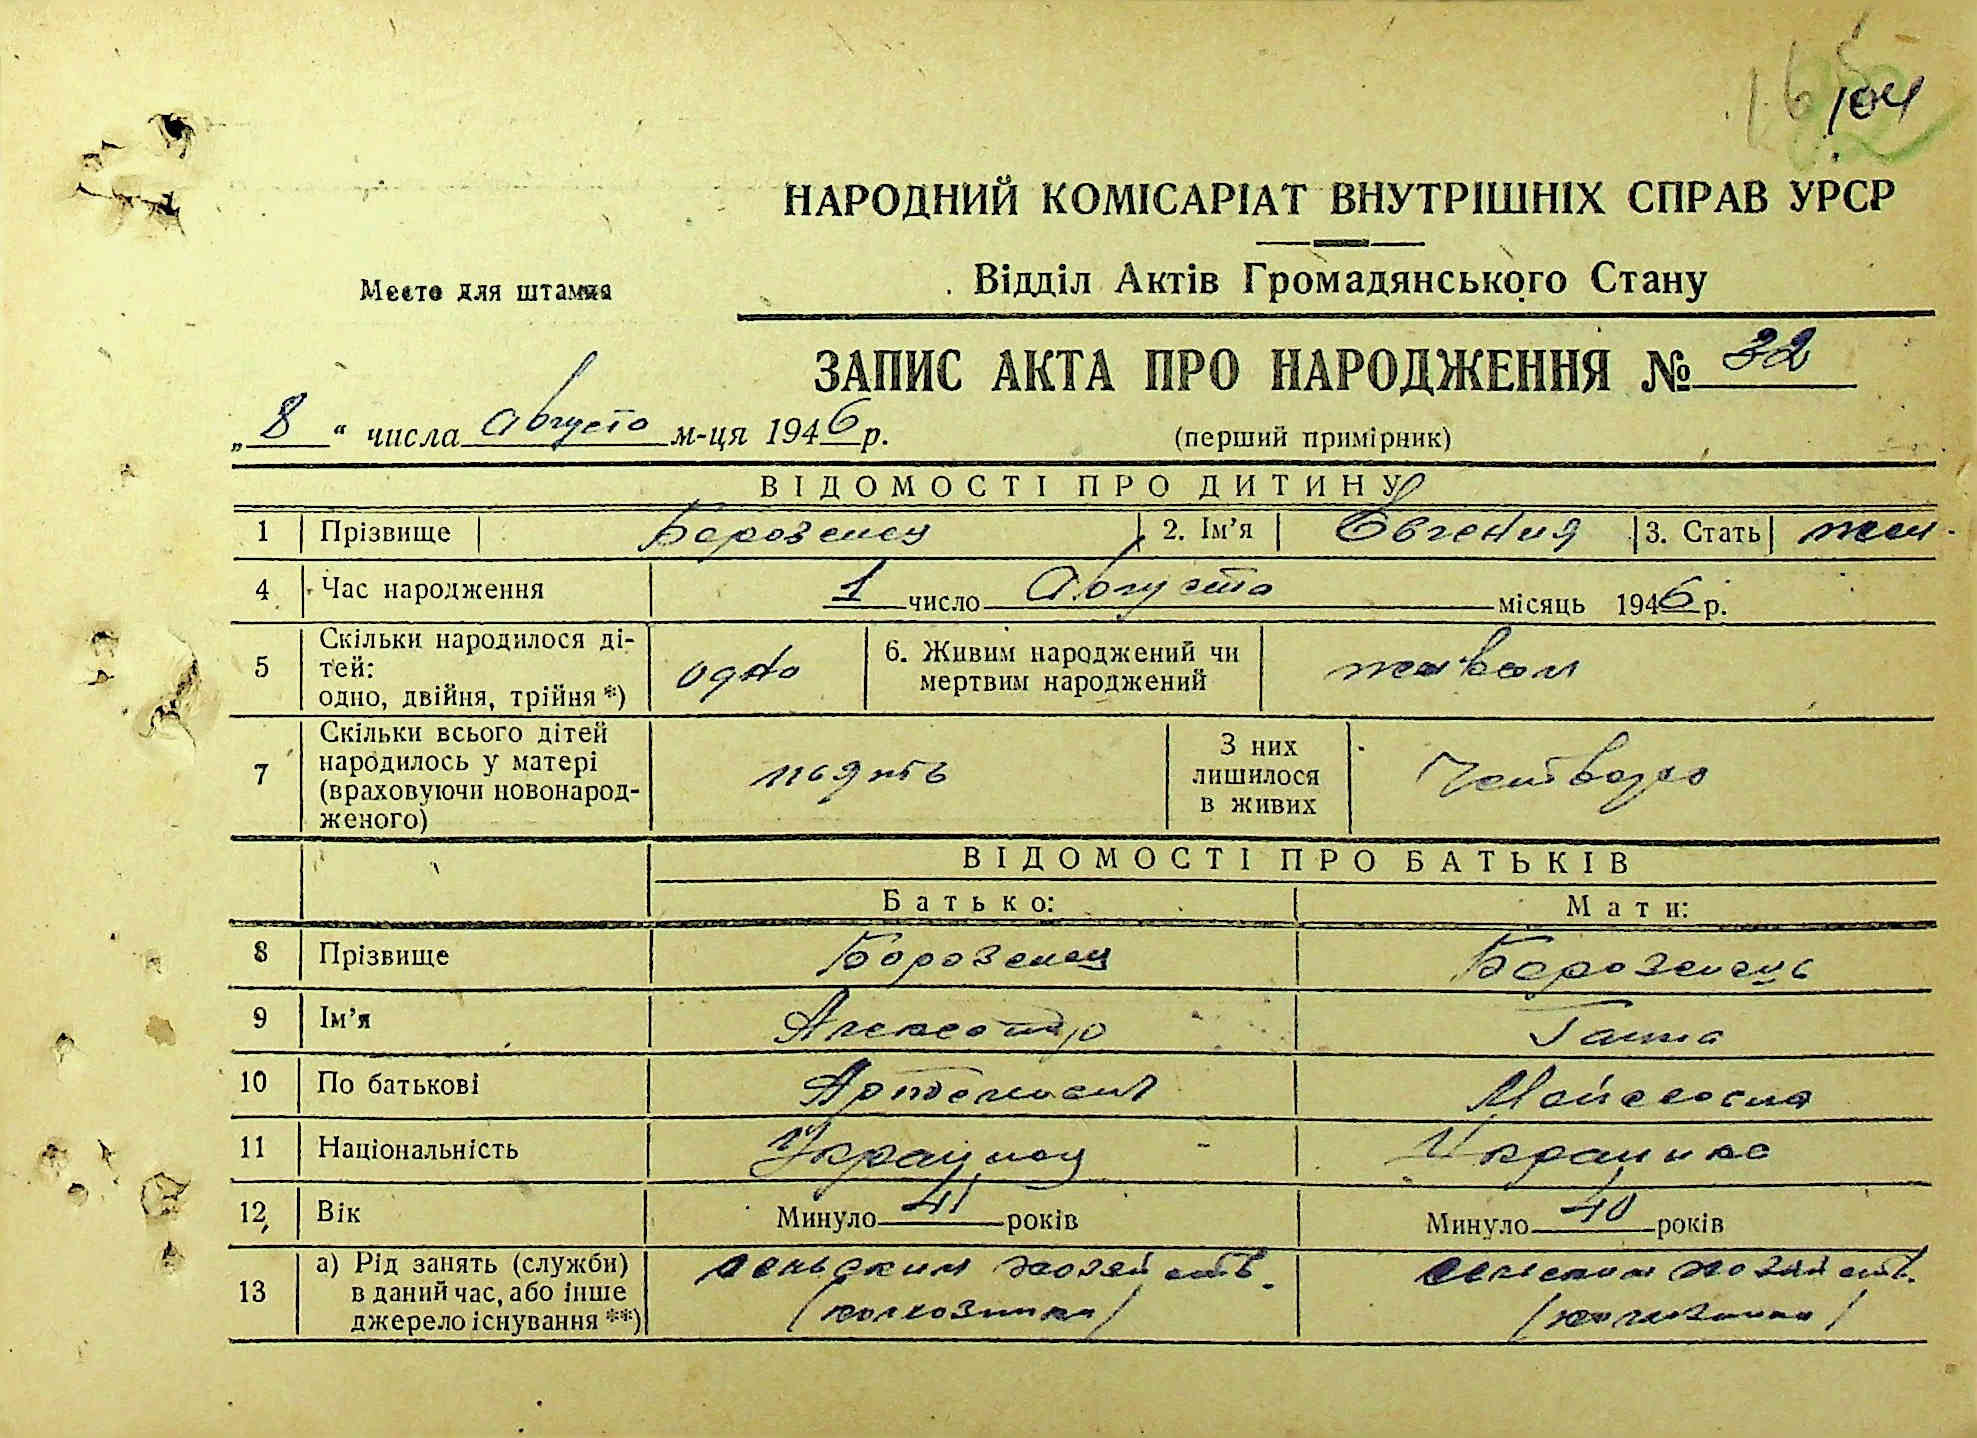 104
НАРОДНИЙ КОМІСАРІАТ ВНУТРІШНІХ СПРАВ УРСР
Место для штампа
Відділ Актів Громадянського Стану
ЗАПИС АКТА ПРО НАРОДЖЕННЯ № 32
„8“ числа августа м-ця 1946 р.
(перший примірник)
ВІДОМОСТІ ПРО ДИТИНУ
1 Прізвище Борозенец 2. Ім’я Евгения 3. Стать жен.
4 Час народження 1 число Августа місяць 1946 р.
5 Скільки народилося ді-
тей:
одно, двійня, трійня *) одно 6. Живим народжений чи
мертвим народжений живым
7 Скільки всього дітей
народилось у матері
(враховуючи новонарод-
женого) пять З них
лишилося
в живих Четверо
ВІДОМОСТІ ПРО БАТЬКІВ
Батько: Мати:
8 Прізвище Борозенец Борозенець
9 Ім’я Александр Ганна
10 По батькові Мойсеевна
11 Національність Украинец Украинка
12 Вік Минуло 41 років Минуло 40 років
13 а) Рід занять (служби)
в даний час, або інше
джерело існування **) сельским хозяйств. сельским хозяйств.